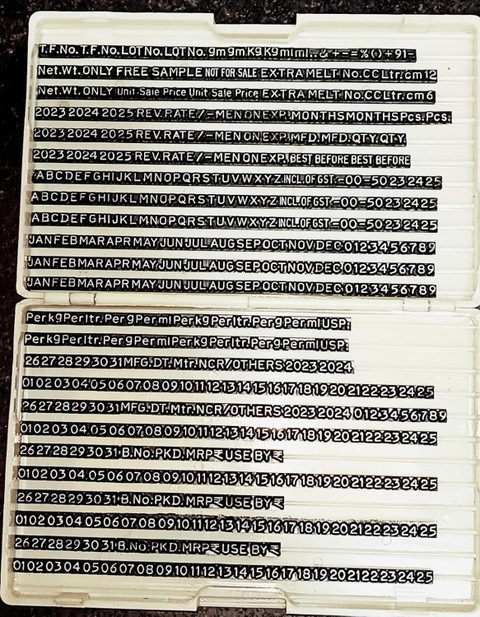 T.F.No.T.F.No.LOTNo.LOTNo.gmgmKgKgmlml.:&'+-=%()+91-
Net.Wt.ONLY FREE SAMPLE NOT FOR SALE EXTRA MELT No.CCLtr.cm12
Net.Wt.ONLY Unit Sale Price Unit Sale Price EXTRA MELT No.CCLtr.cm6
2023 2024 2025 REV.RATE/-MENONEXP.MONTHSMONTHSPcs.Pcs.
2023 2024 2025 REV.RATE/-MENONEXP.MFD.MFD.QTY.QTY.
2023 2024 2025 REV.RATE/-MENONEXP.BEST BEFORE BEST BEFORE
ABCDEFGHIJKLMNOPQRSTUVWXYZINCL.OFGST-00=5023 24 25
ABCDEFGHIJKLMNOPQRSTUVWXYZINCL.OFGST-00=5023 24 25
ABCDEFGHIJKLMNOPQRSTUVWXYZINCL.OFGST-00=5023 24 25
JANFEBMARAPRMAYJUNJULAUGSEPOCTNOVDEC0123456789
JANFEBMARAPRMAYJUNJULAUGSEPOCTNOVDEC0123456789
JANFEBMARAPRMAYJUNJULAUGSEPOCTNOVDEC0123456789
PerkgPerltr.PergPermlPerkgPerltr.PergPermlUSP:
PerkgPerltr.PergPermlPerkgPerltr.PergPermlUSP:
262728293031MFG.DT.Mtr.NCR/OTHERS 20232024
01020304050607080910111213141516171819202122232425
262728293031MFG.DT.Mtr.NCR/OTHERS 2023 2024 0123456789
01020304050607080910111213141516171819202122232425
262728293031B.No.PKD.MRP₹USE BY₹
01020304050607080910111213141516171819202122232425
262728293031B.No.PKD.MRP₹USE BY₹
01020304050607080910111213141516171819202122232425
262728293031B.No.PKD.MRP₹USE BY₹
01020304050607080910111213141516171819202122232425